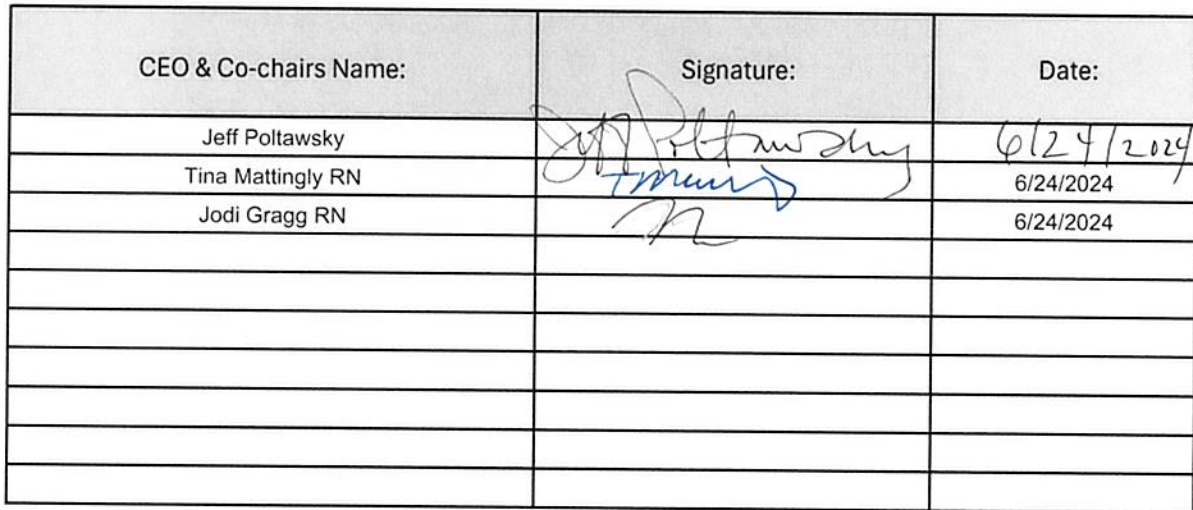 CEO & Co-chairs Name: Signature: Date:
Jeff Poltawsky Jeff Poltawsky 6/24/2024
Tina Mattingly RN 6/24/2024
Jodi Gragg RN 6/24/2024